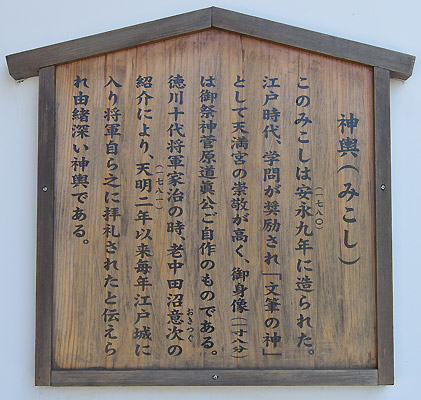 神輿(みこし)
このみこしは安永九年に造られた。
(一七八〇)
江戸時代、学問が奨励され「文筆の神」
として天満宮の崇敬が高く、御身像(二十八分)
は御祭神菅原道真公ご自作のものである。
徳川十代将軍家治の時、老中田沼意次の
おきつぐ
紹介により、天明二年以来毎年江戸城に
(一七八一)
入り将軍自ら之に拝礼されたと伝えら
れ由緒深い神輿である。